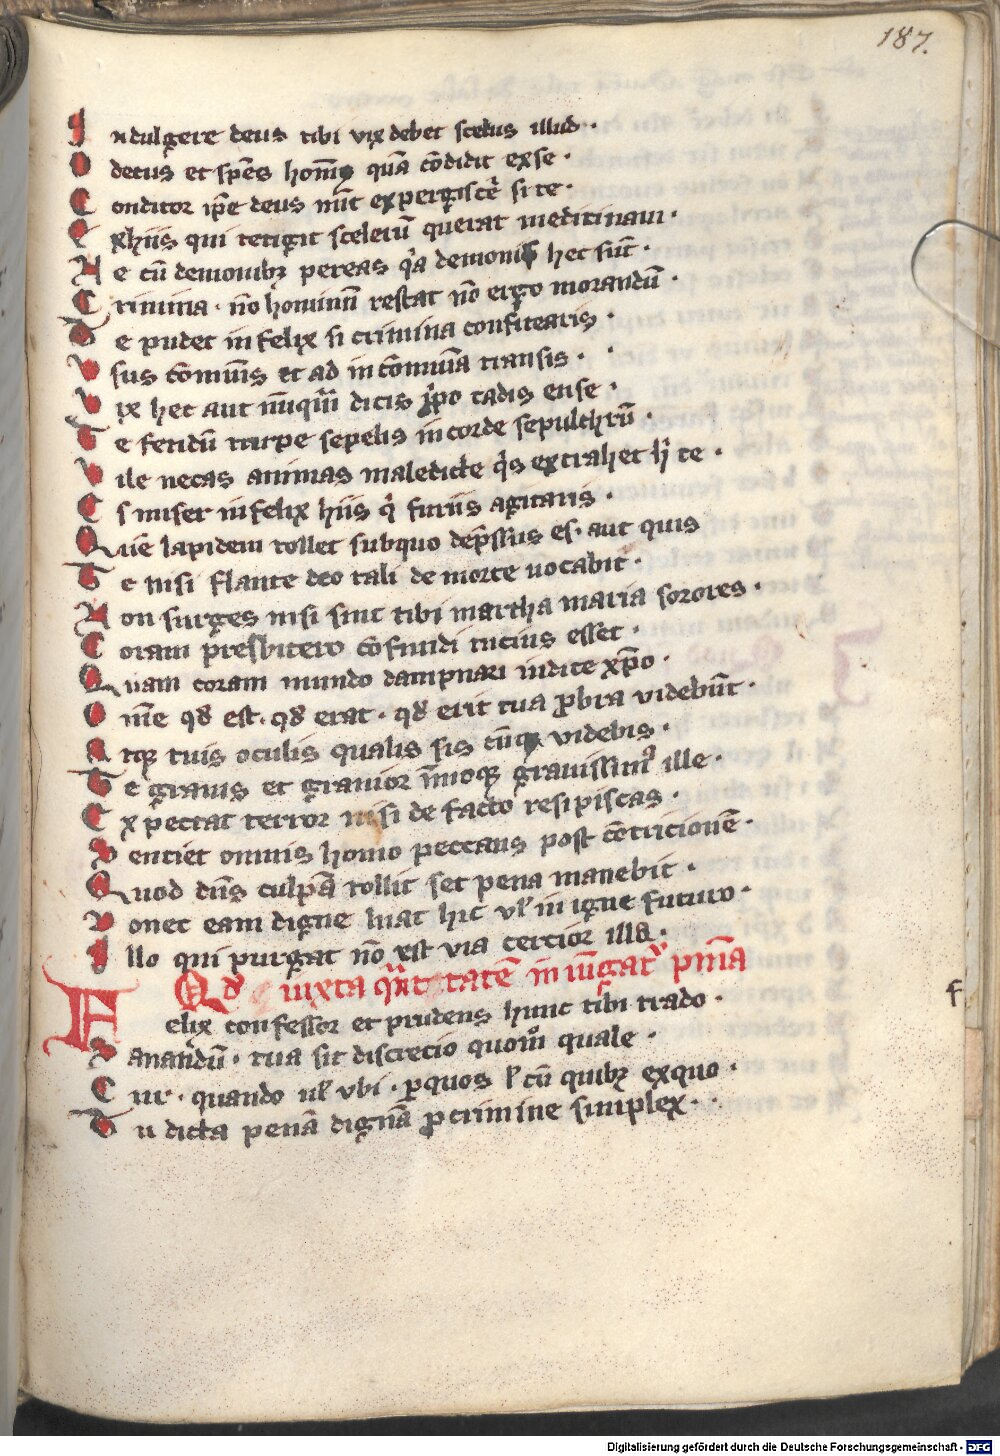 187.
Indulgere deus tibi vix debet scelus illud ·
O decus et spēs homīs quā cōdidit ex se ·
Conditor ip̄e deus nūt expergiscēr̄ si te ·
Exhiis qui tetigit scelerū querat medicinam ·
Ne cū demonibꝫ pereas qͥa demonis hec sūt ·
Crimina · nō hominum restat nō ergo morandū ·
De pudet infelix si crimina confitearis ·
Vsus cōmunīs et ad incōmunīa transis ·
Vix hec aut nūquā dicis ꝓpͦo cadis ense ·
Te fetidū turpe sepelis in corde sepulchrū ·
Vile necas animas maledicte qͦs extrahet hͥ te ·
Es miser infelix hiis qͥ furiis agitaris ·
Quē lapidem tollet sub quo dep̄ssus es · aut quis
Te nisi flante deo tali de morte uocabit ·
Non surges nisi sint tibi martha maria sorores ·
Coram presbitero cōfundi tucius esset ·
Quam coram mundo dampnari iudice xp̄o ·
O mē qd̄ est · qd̄ erat · qd̄ erit tua ꝓbra videbūt ·
Atqꝫ tuis oculis qualis sis cūqꝫ videbis ·
Te grauis et grauior īmoqꝫ grauissimꝰ ille ·
Expectat terror nisi de facto resipiscas ·
Veniet omnis homo peccans post cōtricionē ·
Quod dn̄s culpā tollit set pena manebit ·
Donec eam digne luat hic vl̄ in igne futuro ·
Illo qui purgat nō est via cercior illa ·
Qd̄ iuxta qͣntitatē iniūgatͬ pn̄ia
Felix confessor et prudens hunc tibi trado ·
Sanandū · tua sit discrecio quomͦ quale ·
Cur · quando ul̄ vbi · ꝑ quos l̄ cū quibꝫ ex quo ·
Tu dicta penā dignā ꝓ crimine simplex ·
f
Digitalisierung gefördert durch die Deutsche Forschungsgemeinschaft - DFG